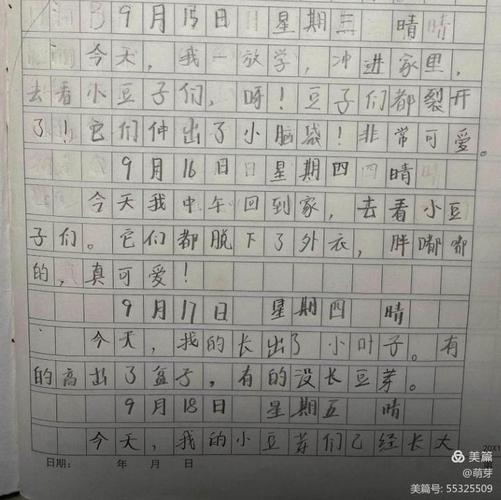 9月15日 星期三 晴
今天，我一放学，冲进家里，
去看小豆子们，呀！豆子们都裂开
了！它们伸出了小脑袋！非常可爱。
9月16日 星期四 晴
今天我中午回到家，去看小豆
子们。它们都脱下了外衣，胖嘟嘟
的，真可爱！
9月17日 星期四 晴
今天，我的长出了小叶子。有
的高出了盒子，有的没长豆芽。
9月18日 星期五 晴
今天，我的小豆芽们已经长大
日期： 年 月 日
20X1
美篇
@萌芽
美篇号: 55325509